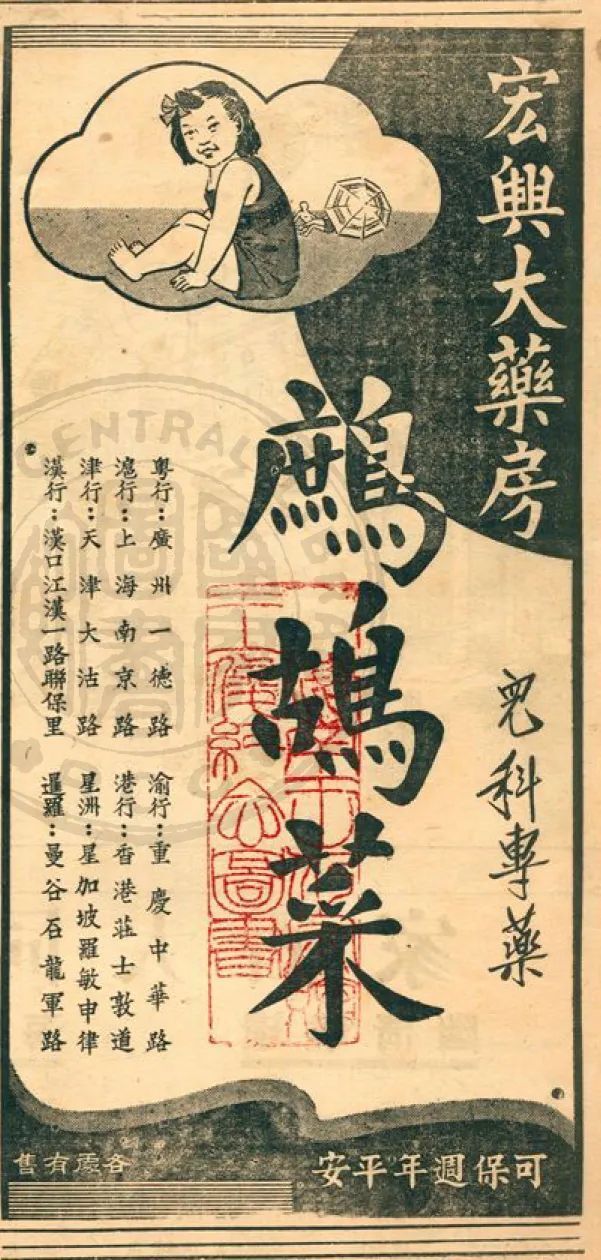 宏興大藥房
兒科專藥
鷓鴣菜
粵行：廣州一德路
滬行：上海南京路
津行：天津大沽路
漢行：漢口江漢一路聯保里
渝行：重慶中華路
港行：香港莊士敦道
星洲：星加坡羅敏申律
暹羅：曼谷石龍軍路
可保週年平安
各處有售
CENTRAL